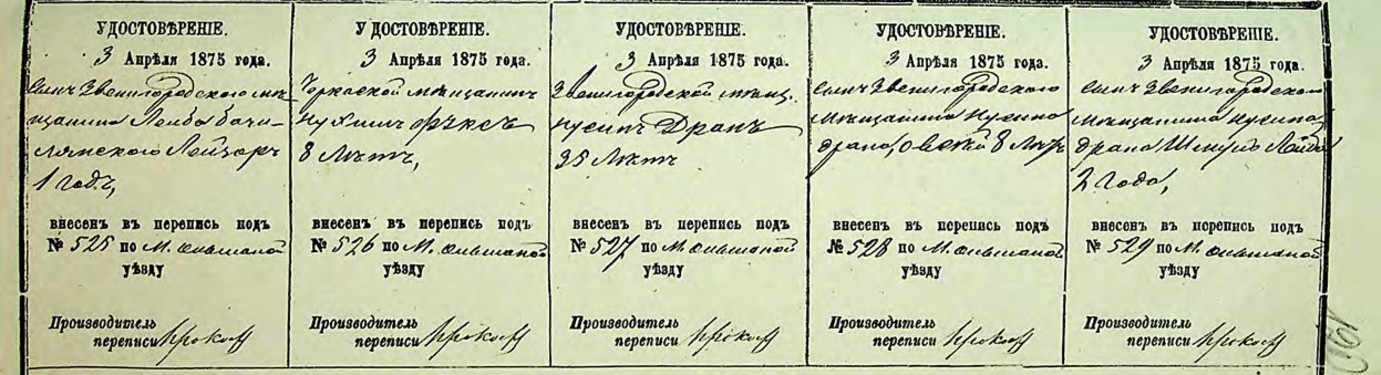 УДОСТОВѢРЕНІЕ.
3 Апрѣля 1875 года.
Сынъ Звенигородского мѣ-
щанина Лейба
Лейзоръ
1 годъ,
внесенъ въ перепись подъ
№ 525 по М. Ольшаной
уѣзду
Производитель
переписи
УДОСТОВѢРЕНІЕ.
3 Апрѣля 1875 года.
мѣщанинъ
Нухимъ Фуксъ
8 Лѣтъ,
внесенъ въ перепись подъ
№ 526 по М. Ольшаной
уѣзду
Производитель
переписи
УДОСТОВѢРЕНІЕ.
3 Апрѣля 1875 года.
Звенигородской мѣщ.
Нусинъ Дранъ
35 Лѣтъ
внесенъ въ перепись подъ
№ 527 по М. Ольшаной
уѣзду
Производитель
переписи
УДОСТОВѢРЕНІЕ.
3 Апрѣля 1875 года.
Сынъ Звенигородского
мѣщанина Нусина
Драна, 8 Лѣтъ
внесенъ въ перепись подъ
№ 528 по М. Ольшаной
уѣзду
Производитель
переписи
УДОСТОВѢРЕНІЕ.
3 Апрѣля 1875 года.
Сынъ Звенигородского
мѣщанина Нусина
Драна Шмуль Лейба
2 Года,
внесенъ въ перепись подъ
№ 529 по М. Ольшаной
уѣзду
Производитель
переписи